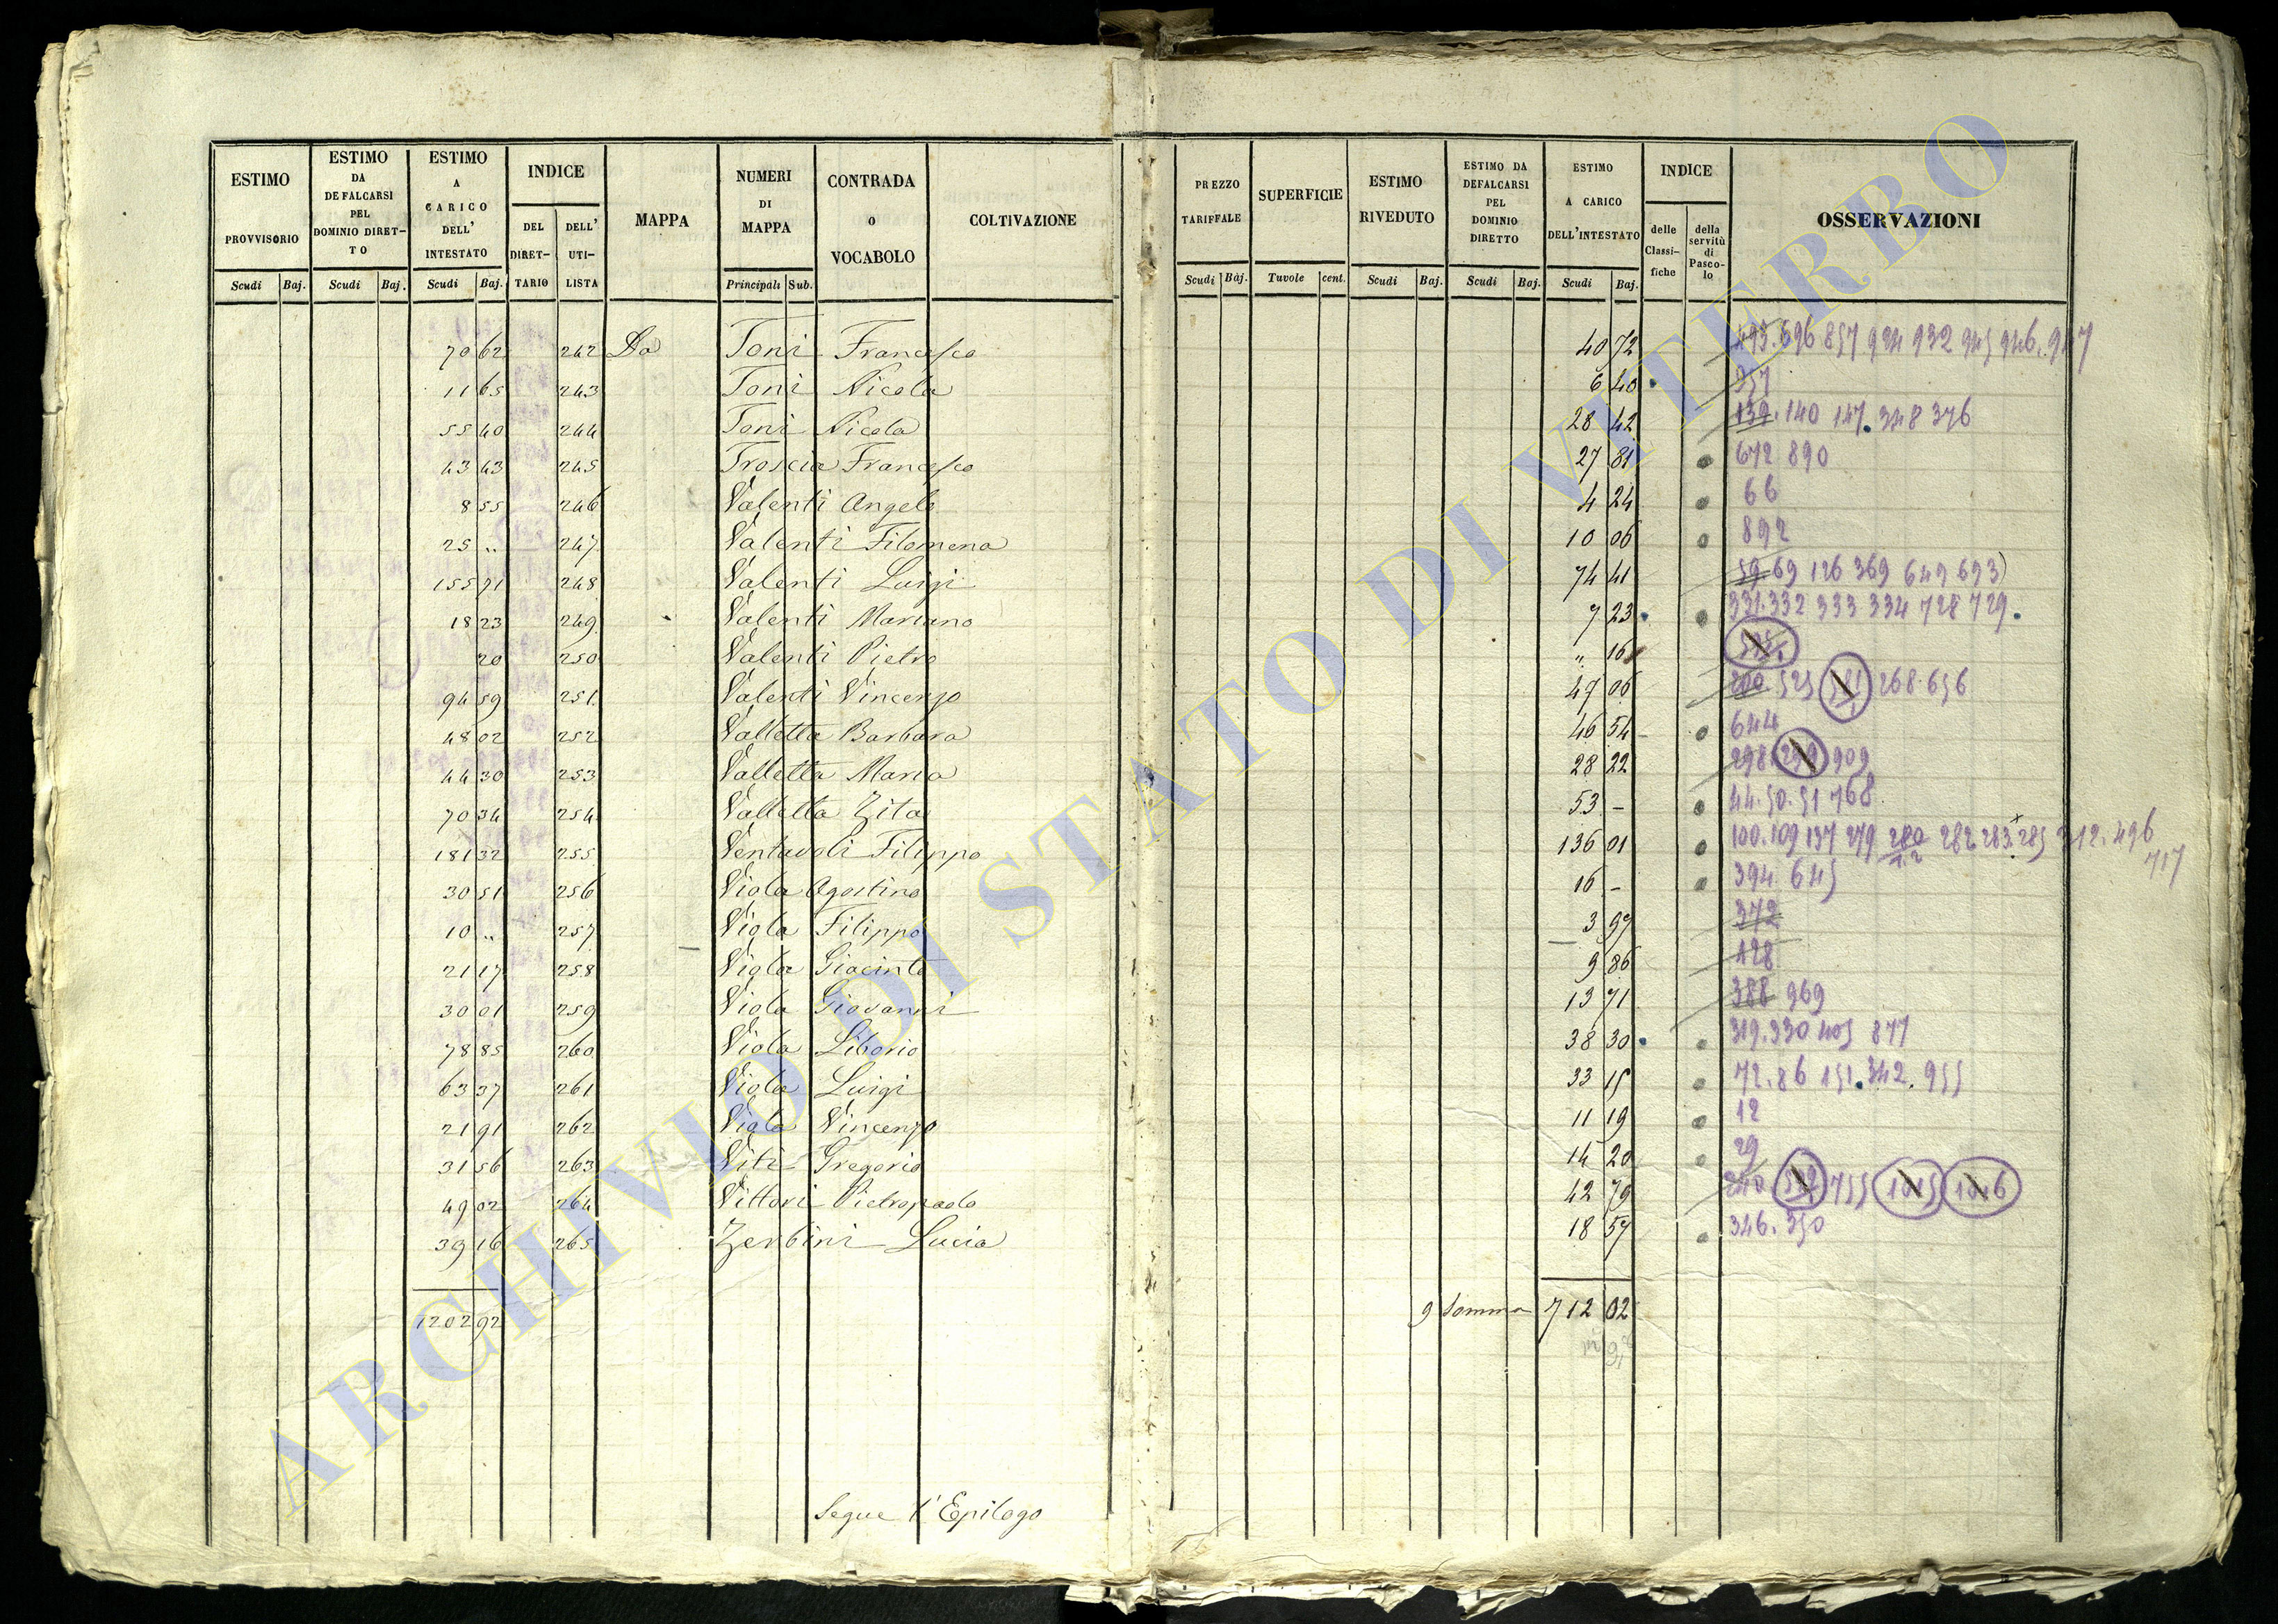 ESTIMO PROVVISORIO
ESTIMO DA DEFALCARSI PEL DOMINIO DIRETTO
ESTIMO A CARICO DELL' INTESTATO
INDICE
DEL DIRETTARIO
DELL' UTILISTA
MAPPA
NUMERI DI MAPPA
CONTRADA O VOCABOLO
COLTIVAZIONE
Scudi Baj. Scudi Baj. Scudi Baj. Principali Sub.
PREZZO TARIFFALE
SUPERFICIE
ESTIMO RIVEDUTO
ESTIMO DA DEFALCARSI PEL DOMINIO DIRETTO
ESTIMO A CARICO DELL'INTESTATO
INDICE
delle Classifiche
della servitù di Pascolo
OSSERVAZIONI
Scudi Baj. Tavole cent. Scudi Baj. Scudi Baj. Scudi Baj.
70 62 242 Da Toni Francesco 40 72
11 65 243 Toni Nicola 6 40 357
55 40 244 Toni Nicola 28 42 139. 140 147. 348 376
43 43 245 Troscia Francesco 27 81 672 890
8 55 246 Valenti Angelo 4 24 66
25 „ 247 Valenti Filomena 10 06 892
155 91 248 Valenti Luigi 74 41 59. 69 126 369 649 693
18 23 249 Valenti Mariano 7 23 331. 332 333 334 728 729.
20 250 Valenti Pietro „ 16
94 59 251 Valenti Vincenzo 47 06 268. 656
48 02 252 Valletta Barbara 46 54 644
44 30 253 Valletta Maria 28 22 298 299 909
70 34 254 Valletta Zita 53 – 44. 50. 51 768
181 32 255 Ventavoli Filippo 136 01 100. 109 137 279 280 282 283. 285 312. 496
717
30 51 256 Viola Agostino 16 – 394 645
10 „ 257 Viola Filippo 3 97 372
21 17 258 Viola Giacinto 9 86 128
30 01 259 Viola Giovanni 13 71 388 969
78 85 260 Viola Liborio 38 30 319. 330 405 877
63 37 261 Viola Luigi 33 15 72. 86 151. 342. 955
21 91 262 Viola Vincenzo 11 19 12
31 56 263 Viti Gregorio 14 20 29
49 02 264 Vittori Pietropaolo 42 79 755 1015 1016
39 16 265 Zerbini Lucia 18 57 346. 350
1202 92 Somma 712 02
Segue l'Epilogo
ARCHIVIO DI STATO DI VITERBO